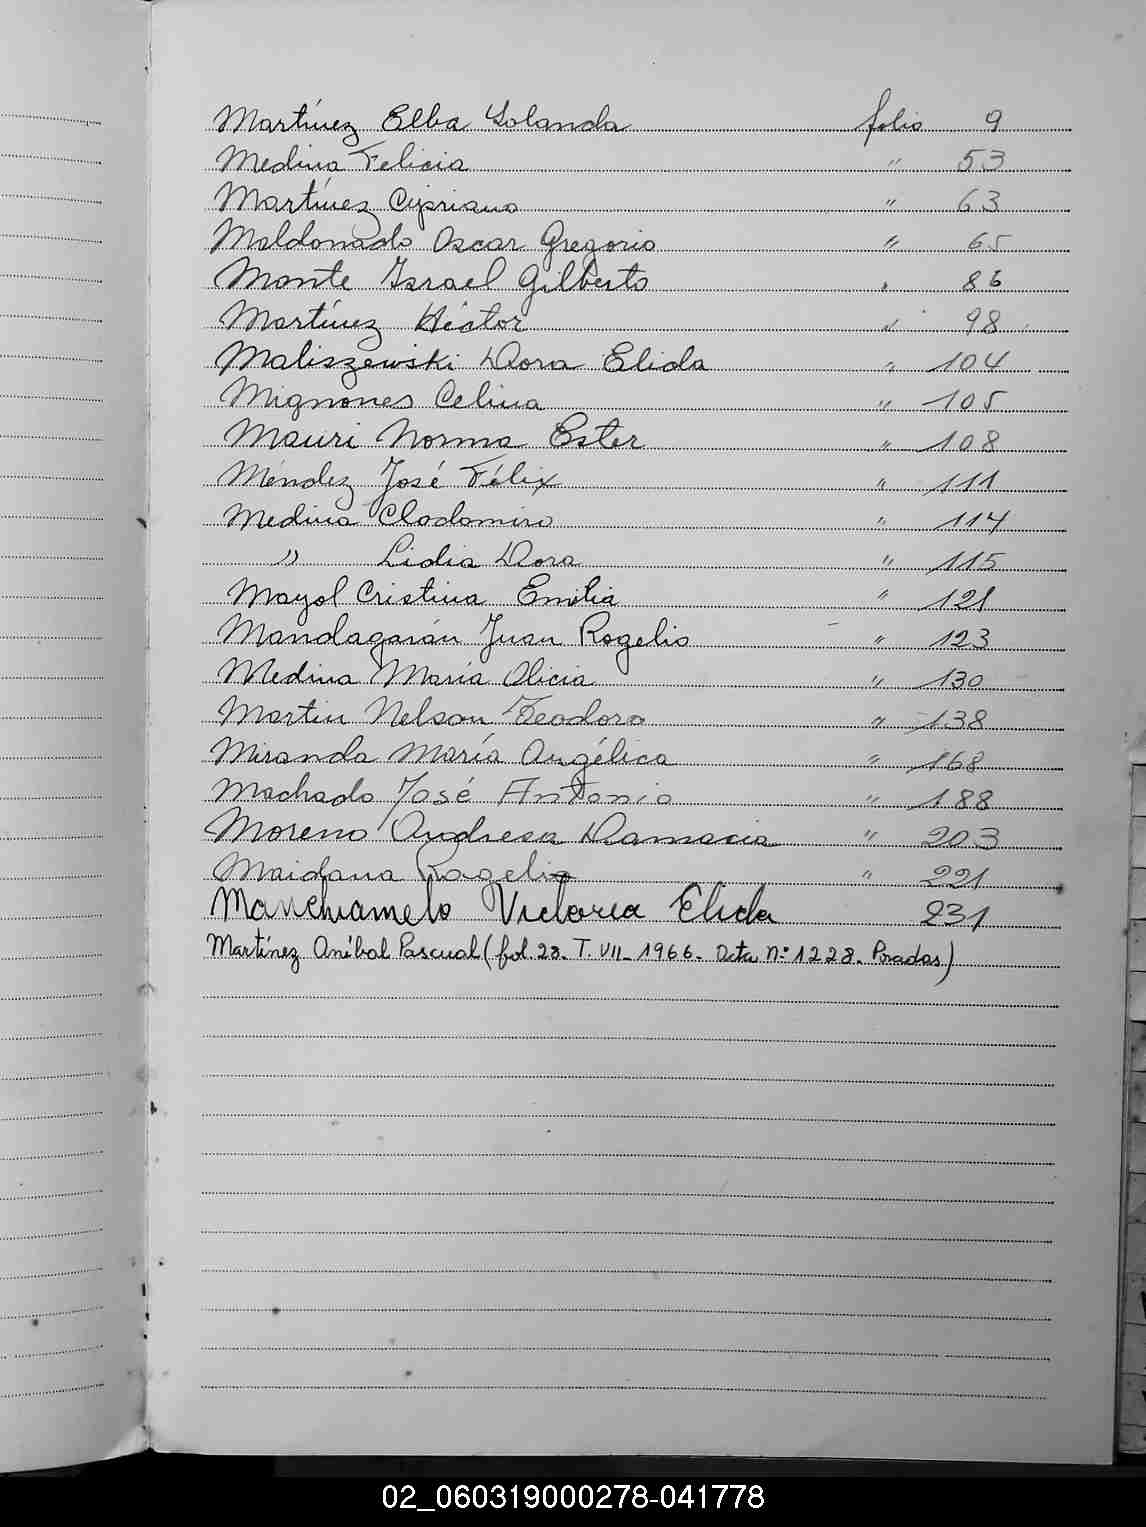 Martínez Elba Yolanda folio 9
Medina Felicia " 53
Martínez Cipriano " 63
Maldonado Oscar Gregorio " 65
Monte Israel Gilberto " 86
Martínez Héctor " 98
Maliszewski Dora Elida " 104
Mignones Celina " 105
Mauri Norma Ester " 108
Méndez José Félix " 111
Medina Clodomiro " 114
" Lidia Dora " 115
Mayol Cristina Emilia " 121
Mandagarán Juan Rogelio " 123
Medina María Alicia " 130
Martin Nelson Teodoro " 138
Miranda María Angélica " 168
Machado José Antonio " 188
Moreno Andresa Damacia " 203
Maidana Rogelio " 221
Manchiamelo Victoria Elida 231
Martínez Aníbal Pascual (fol. 23. T. VII - 1966. Acta Nº 1228. Posadas)
02_060319000278-041778